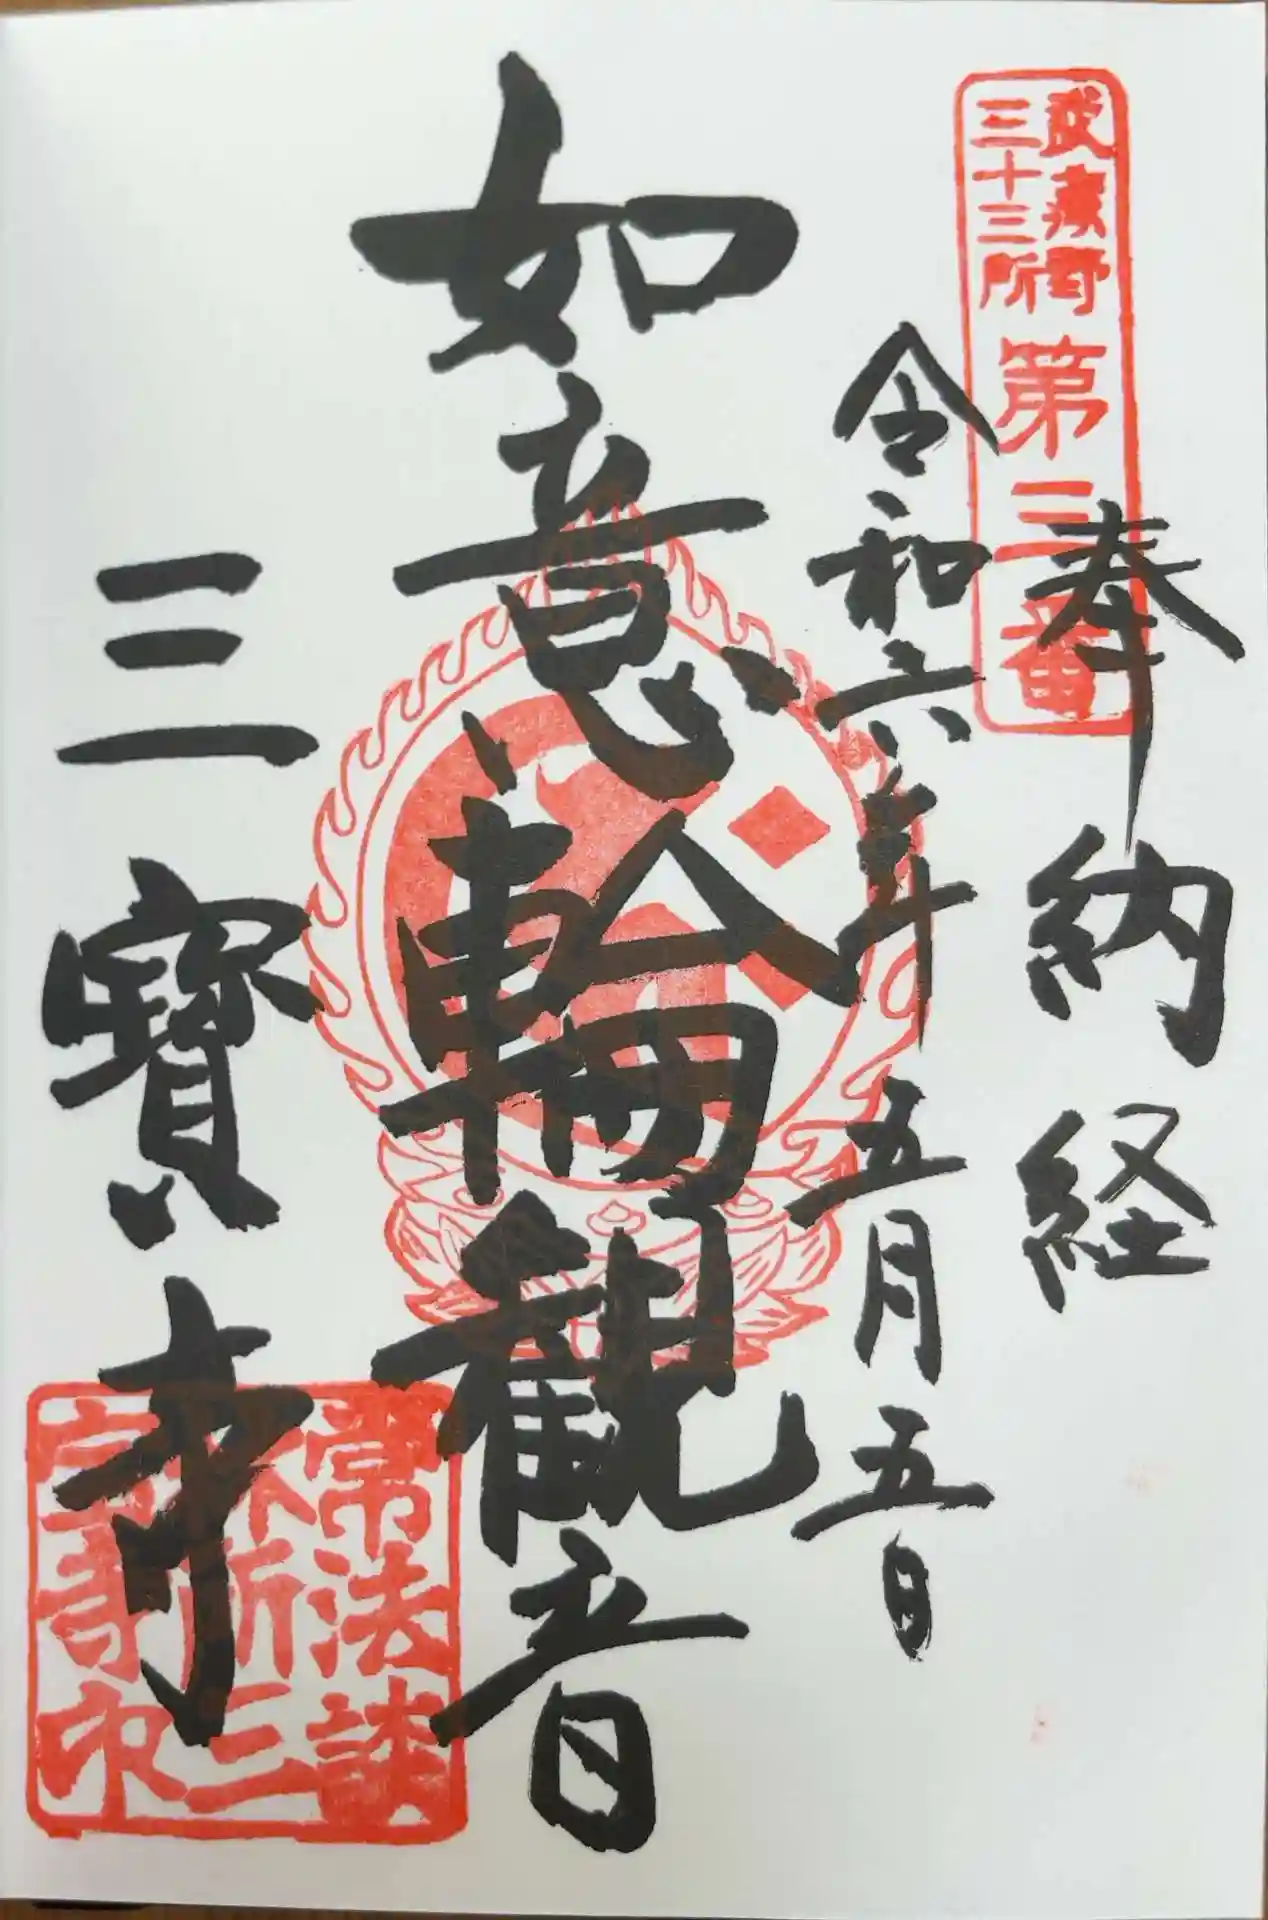 武蔵野
三十三所
第三番
奉納経
令和六年五月五日
如意輪観音
三寶寺
常法談
林所三
宝寺印